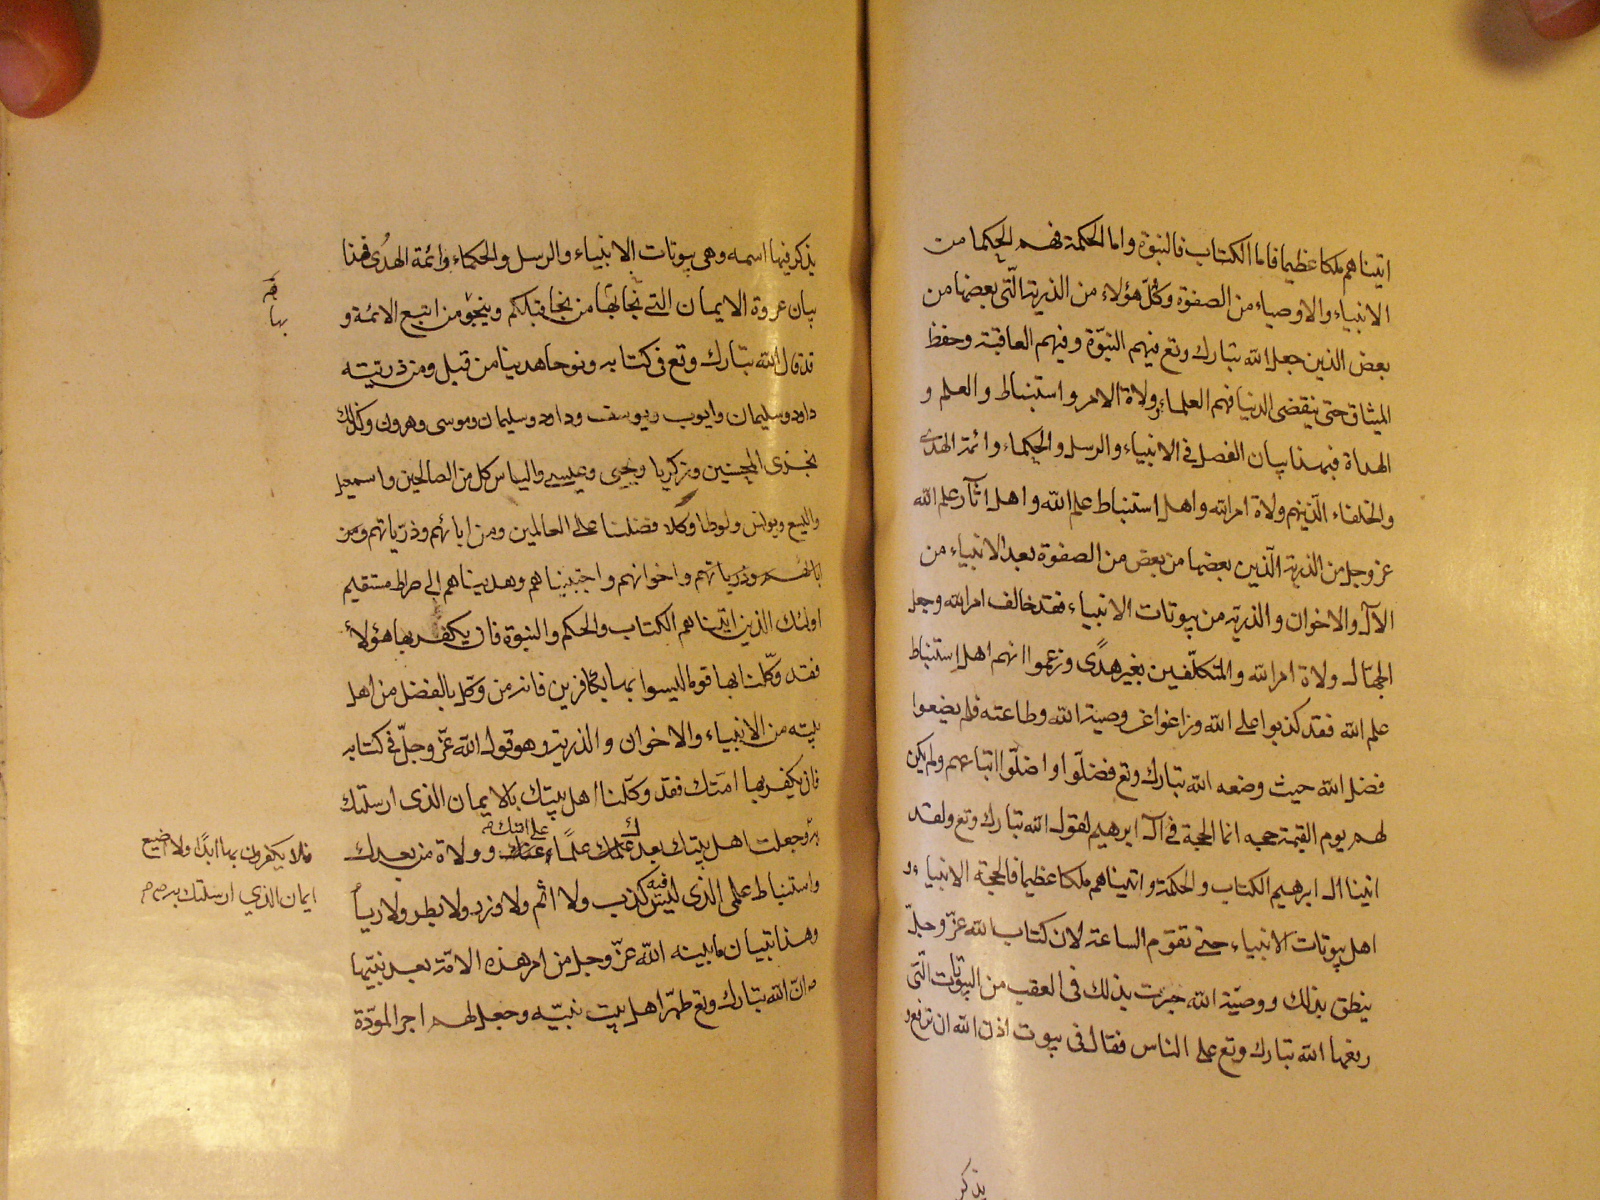 اتيناهم ملكا عظيما فاما الكتاب فالنبوة واما الحكمة فهم الحكما من
الانبياء والاوصياء من الصفوة وكلّ هؤلاء من الذرية الّتى بعضها من
بعض الذين جعل الله تبارك وتع فيهم النبوّة وفيهم العاقبة وحفظ
الميثاق حتى ينقضى الدنيا فهم العلماء وولاة الامر واستنباط والعلم و
الهداة فهذا بيان الفضل فى الانبياء والرسل والحكماء وائمة الهدى
والخلفاء الّذينهم ولاة امر الله واهل استنباط علم الله واهل اثار علم الله
عز وجل من الذرية الّذين بعضها من بعض من الصفوة بعد الانبياء من
الآل والاخوان والذرية من بيوتات الانبياء فقد خالف امر الله وجعل
الجهّال ولاة امر الله والمتكلّفين بغير هدًى وزعموا انهم اهل استنباط
علم الله فقد كذبوا على الله وزاغوا عن وصية الله وطاعته فلم يضعوا
فضل الله حيث وضعه الله تبارك وتع فضلّوا واضلّوا اتباعهم ولم يكن
لهم يوم القيمة حجه انما الحجة فى آل ابرهيم لقول الله تبارك وتع ولقد
اتينا ال ابرهيم الكتاب والحكمة واتيناهم ملكا عظيما فالحجة الانبياء و
اهل بيوتات الانبياء حتى تقوم الساعة لان كتاب الله عزّ وجلّ
ينطق بذلك ووصيّة الله جرت بذلك فى العقب من البيوتات الّتى
رفعها الله تبارك وتع على الناس فقال فى بيوت اذن الله ان ترفع و
يذكر
يذكر فيها اسمه وهى بيوتات الانبياء والرسل والحكماء وائمة الهدُى فهذا
بيان عروة الايمان التى نجا بها من نجا قبلكم وينجو من اتبع الائمة و
قد قال الله تبارك وتع فى كتابه ونوحا هدينا من قبل ومن ذريته
داود وسليمان وايوب ويوسف وداود وسليمان وموسى وهرون وكذلك
نجزى المحسنين وزكريا ويحيى وعيسى والياس كل من الصالحين واسمعيل
واليسع ويونس ولوطا وكلا فضلنا على العالمين ومن ابائهم وذرياتهم ومن
ابائهم وذرياتهم واخوانهم واجتبيناهم وهديناهم الى صراط مستقيم
اولئك الذين اتيناهم الكتاب والحكم والنبوة فان يكفر بها هؤلاء
فقد وكّلنا بها قوما ليسوا بها بكافرين فانه من وكّل بالفضل من اهل
بيته من الانبياء والاخوان والذرية وهو قول الله عزّ وجلّ فى كتابه
فان يكفر بها امتك فقد وكّلنا اهل بيتك بالايمان الذى ارسلتك
به وجعلت اهل بيتك بعدك علماء على امتك وولاة من بعدك
واستنباط علمى الذى ليس فيه كذب ولا اثم ولا وزر ولا بطر ولا رياء
وهذا تبيان ما بينه الله عزّ وجل من امر هذه الامّة بعد نبيّها
ص انّ الله تبارك وتع طهّر اهل بيت نبيّه وجعل لهم اجر المودّة
بها
فلا يكفرون بها ابدًا ولا اضيع
ايمان الذي ارسلتك به